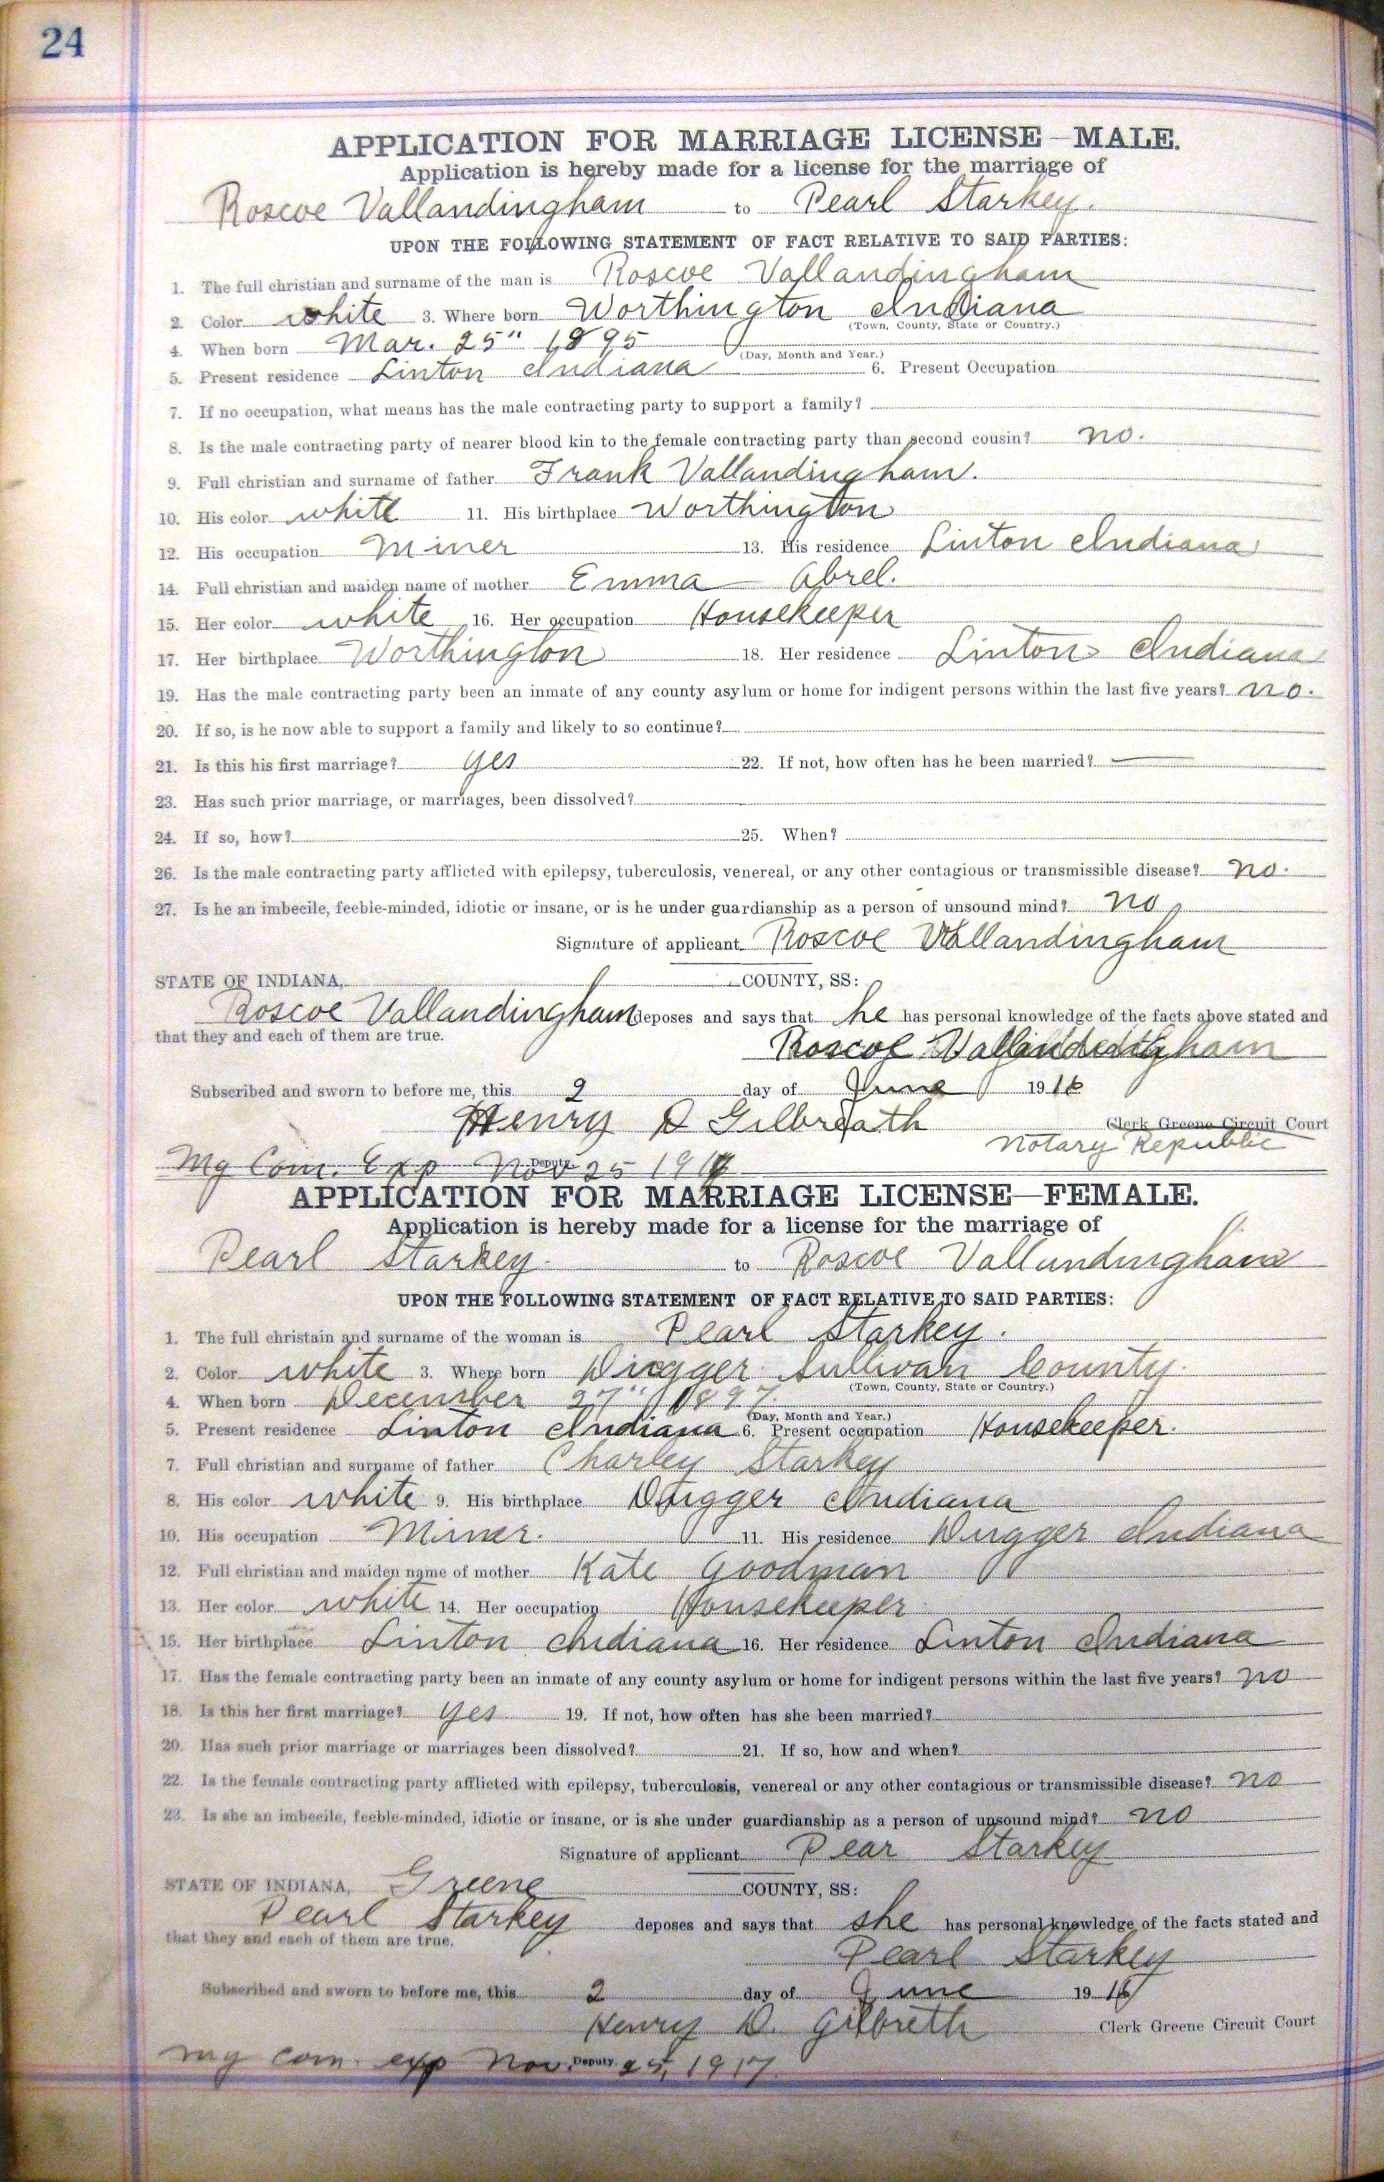 24
APPLICATION FOR MARRIAGE LICENSE—MALE.
Application is hereby made for a license for the marriage of
Roscoe Vallandingham to Pearl Starkey.
UPON THE FOLLOWING STATEMENT OF FACT RELATIVE TO SAID PARTIES:
1. The full christian and surname of the man is Roscoe Vallandingham
2. Color white 3. Where born Worthington Indiana
(Town, County, State or Country.)
4. When born Mar. 25" 1895
(Day, Month and Year.)
5. Present residence Linton Indiana 6. Present Occupation
7. If no occupation, what means has the male contracting party to support a family?
8. Is the male contracting party of nearer blood kin to the female contracting party than second cousin? no.
9. Full christian and surname of father Frank Vallandingham.
10. His color white 11. His birthplace Worthington
12. His occupation Miner 13. His residence Linton Indiana
14. Full christian and maiden name of mother Emma Abrel.
15. Her color white 16. Her occupation Housekeeper
17. Her birthplace Worthington 18. Her residence Linton Indiana
19. Has the male contracting party been an inmate of any county asylum or home for indigent persons within the last five years? no.
20. If so, is he now able to support a family and likely to so continue?
21. Is this his first marriage? yes 22. If not, how often has he been married? —
23. Has such prior marriage, or marriages, been dissolved?
24. If so, how? 25. When?
26. Is the male contracting party afflicted with epilepsy, tuberculosis, venereal, or any other contagious or transmissible disease? no.
27. Is he an imbecile, feeble-minded, idiotic or insane, or is he under guardianship as a person of unsound mind? no
Signature of applicant Roscoe Vallandingham
STATE OF INDIANA, COUNTY, SS:
Roscoe Vallandingham deposes and says that he has personal knowledge of the facts above stated and
that they and each of them are true.
Roscoe Vallandingham
Subscribed and sworn to before me, this 2 day of June 1916
Henry D Gilbreath Clerk Greene Circuit Court
Notary Republic
My Com. Exp Nov 25 1917 Deputy
APPLICATION FOR MARRIAGE LICENSE—FEMALE.
Application is hereby made for a license for the marriage of
Pearl Starkey. to Roscoe Vallandingham
UPON THE FOLLOWING STATEMENT OF FACT RELATIVE TO SAID PARTIES:
1. The full christain and surname of the woman is Pearl Starkey.
2. Color white 3. Where born Dugger Sullivan County.
(Town, County, State or Country.)
4. When born December 27" 1897.
(Day, Month and Year.)
5. Present residence Linton Indiana 6. Present occupation Housekeeper.
7. Full christian and surname of father Charley Starkey
8. His color white 9. His birthplace Dugger Indiana
10. His occupation Miner. 11. His residence Dugger Indiana
12. Full christian and maiden name of mother Kate Goodman
13. Her color white 14. Her occupation Housekeeper
15. Her birthplace Linton Indiana 16. Her residence Linton Indiana
17. Has the female contracting party been an inmate of any county asylum or home for indigent persons within the last five years? no
18. Is this her first marriage? yes 19. If not, how often has she been married?
20. Has such prior marriage or marriages been dissolved? 21. If so, how and when?
22. Is the female contracting party afflicted with epilepsy, tuberculosis, venereal or any other contagious or transmissible disease? no
23. Is she an imbecile, feeble-minded, idiotic or insane, or is she under guardianship as a person of unsound mind? no
Signature of applicant Pear Starkey
STATE OF INDIANA, Greene COUNTY, SS:
Pearl Starkey deposes and says that she has personal knowledge of the facts stated and
that they and each of them are true.
Pearl Starkey
Subscribed and sworn to before me, this 2 day of June 1916
Henry D. Gilbreth Clerk Greene Circuit Court
my com. exp Nov. 25, 1917. Deputy